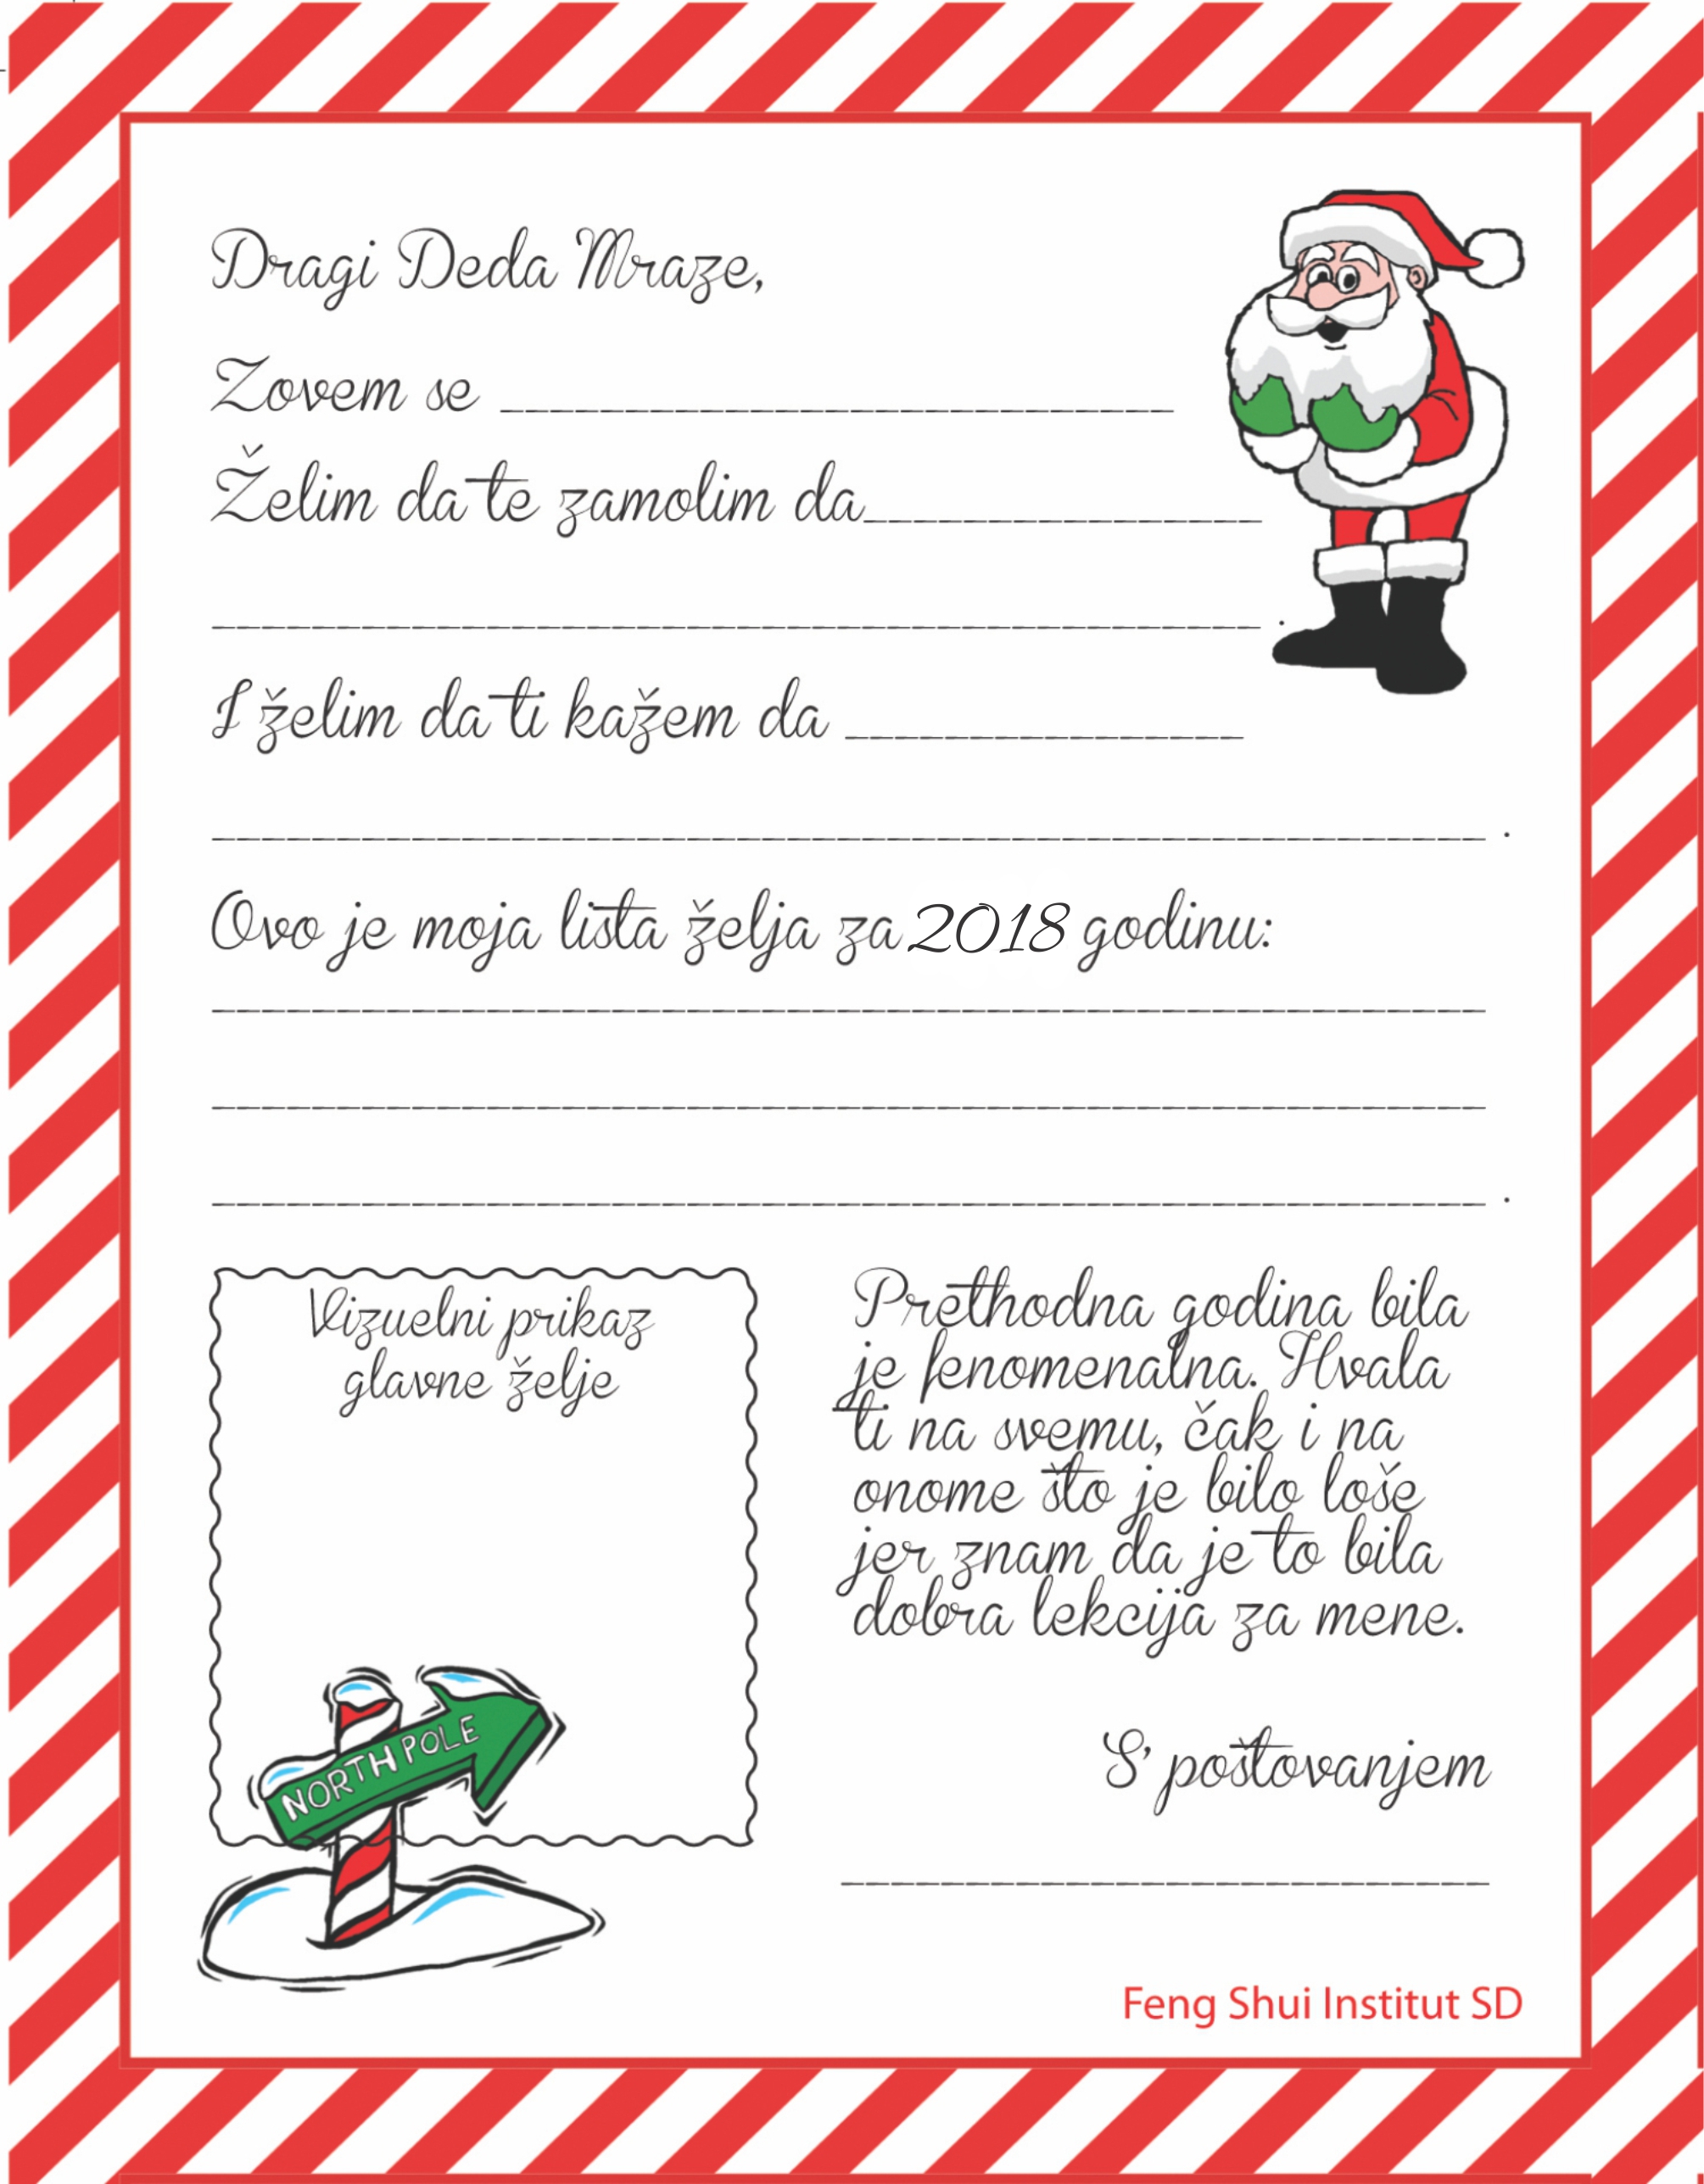 Dragi Deda Mraze,
Zovem se ___________________________
Želim da te zamolim da________________
__________________________________________ .
I želim da ti kažem da ________________
___________________________________________________ .
Ovo je moja lista želja za 2018 godinu:
___________________________________________________
___________________________________________________
___________________________________________________ .
Vizuelni prikaz
glavne želje
NORTH POLE
Prethodna godina bila
je fenomenalna. Hvala
ti na svemu, čak i na
onome što je bilo loše
jer znam da je to bila
dobra lekcija za mene.
S' poštovanjem
__________________________
Feng Shui Institut SD